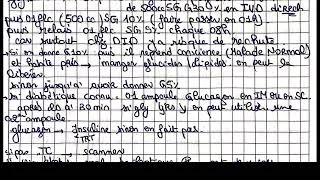 de 50cc SG G30% en IVD direct
puis 01 flc (500 cc) SG 10% (faire passer en 01H)
puis relais 01 flc SG 5% chaque 08h
car surtout chz DID à risque de rechute
si on donne G10% puis il reprend conscience (Malade Normal)
et Petite près → manger glucides/lipides. on peut le
libérer
sinon jusqu'à avoir donner G5%
si diabétique connu: 01 ampoule Glucagon en IM ou en SC
après 20 à 30 min si gly on peut utiliser une
2e ampoule
glucagon → Insuline sinon on fait pas.
TRT
si pas TC scanner